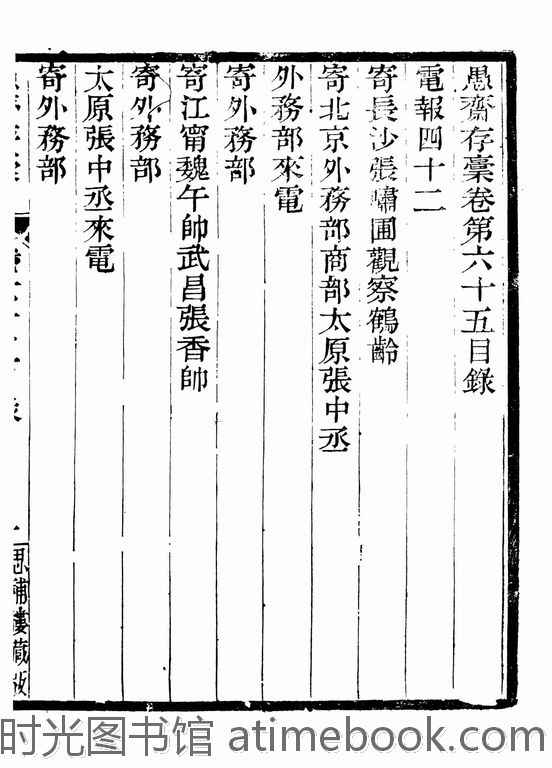 愚齋存稾卷第六十五目錄
電報四十二
寄長沙張嘯圃觀察鶴齡
寄北京外務部商部太原張中丞
外務部來電
寄外務部
寄江甯魏午帥武昌張香帥
寄外務部
太原張中丞來電
寄外務部
思補樓藏版
时光图书馆 atimebook.com